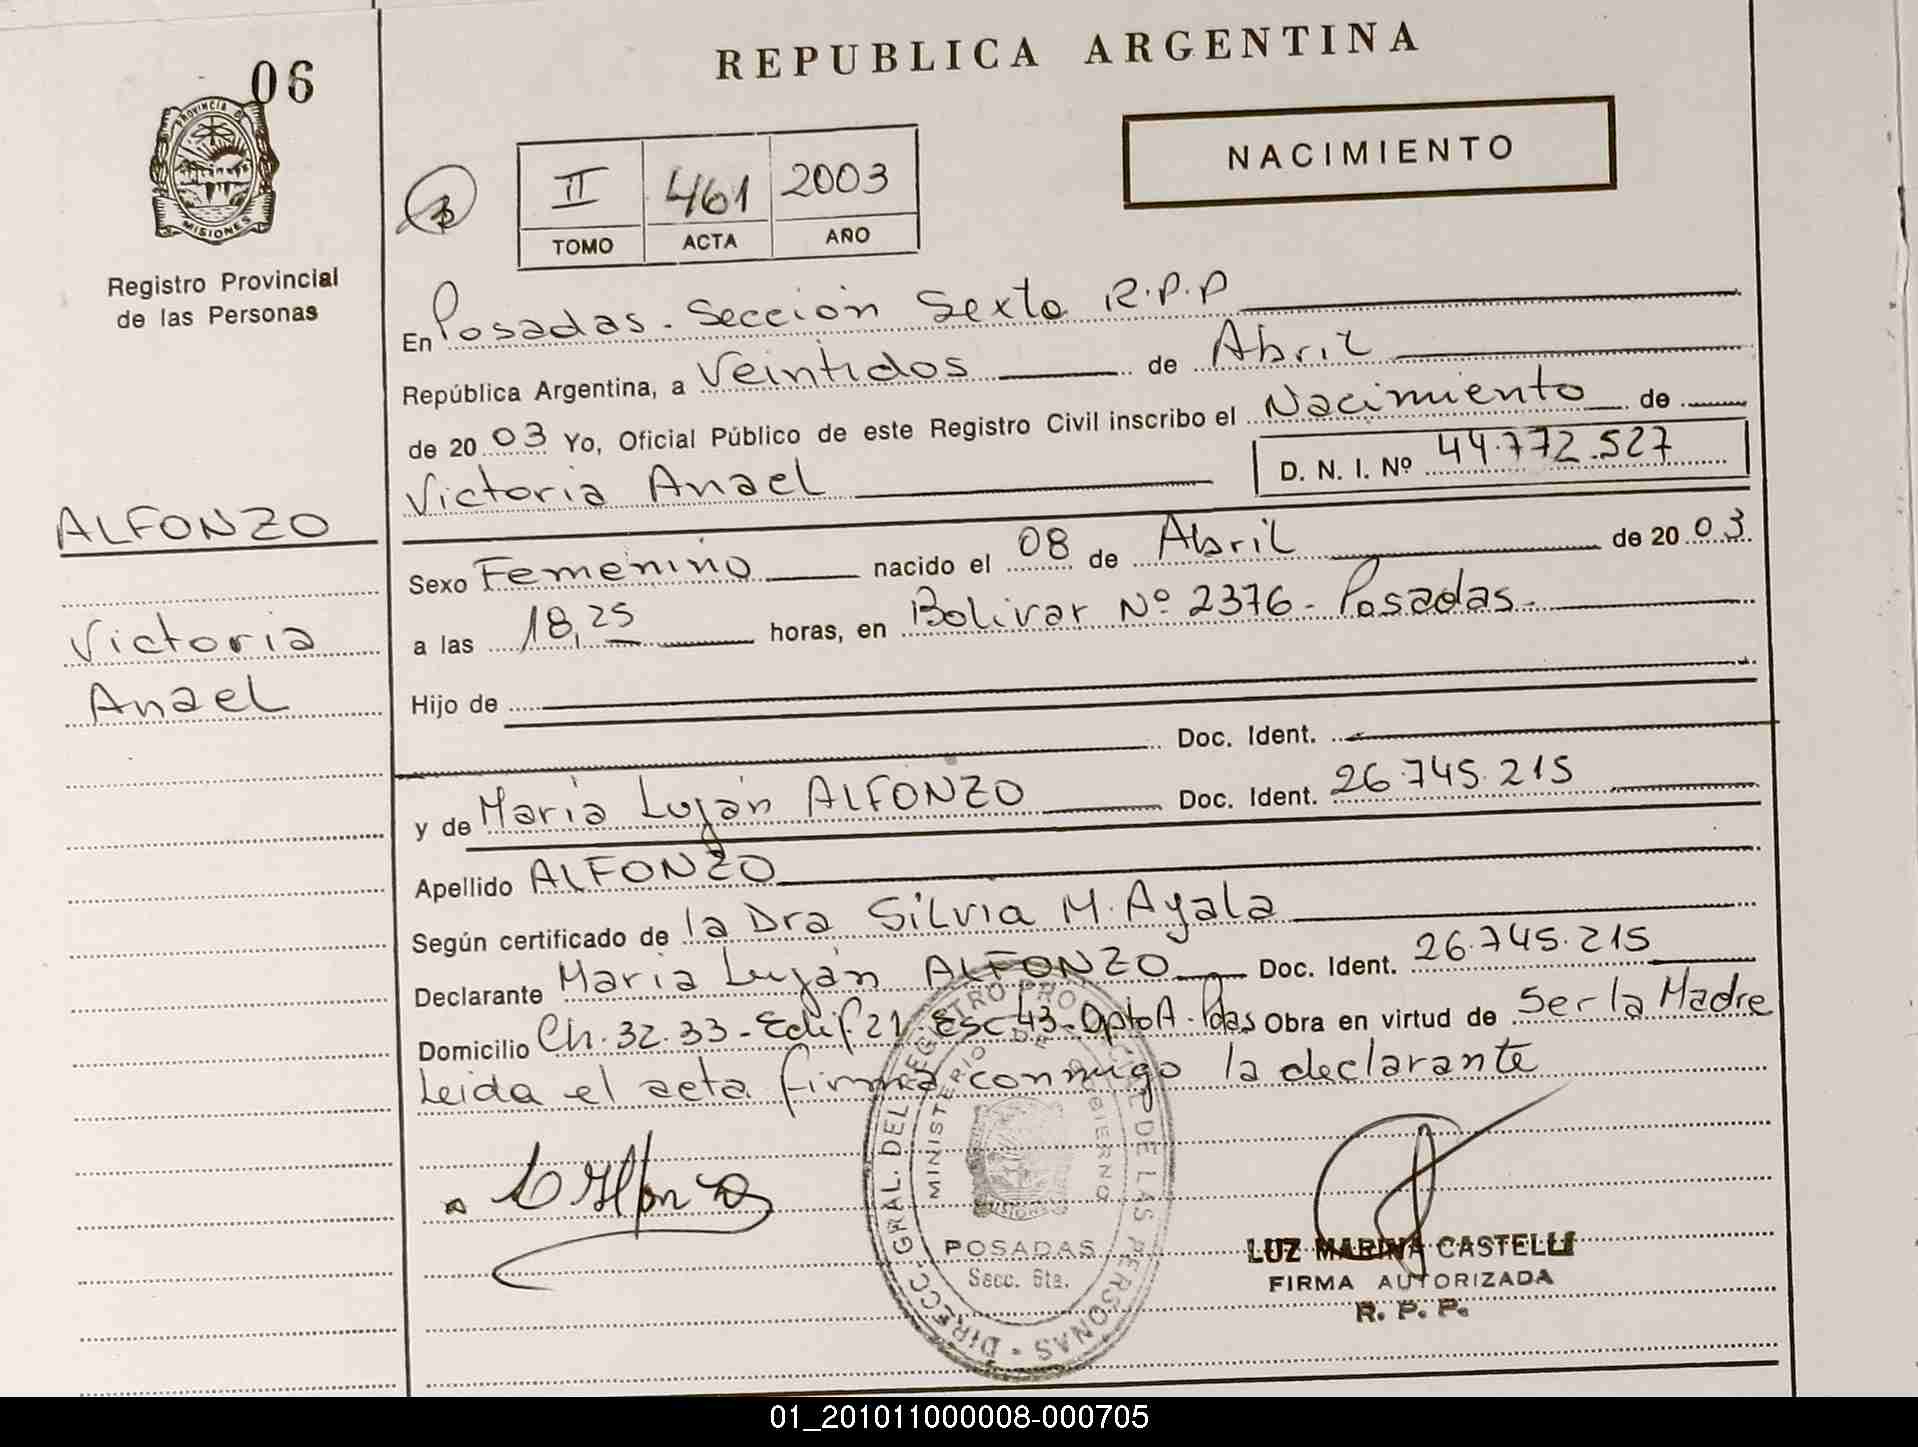 06
REPUBLICA ARGENTINA
PROVINCIA DE
MISIONES
Registro Provincial
de las Personas
NACIMIENTO
II 461 2003
TOMO ACTA AÑO
En Posadas. Sección Sexta R.P.P
República Argentina, a Veintidos de Abril
de 2003 Yo, Oficial Público de este Registro Civil inscribo el Nacimiento de
Victoria Anael D. N. I. Nº 44.772.527
ALFONZO
Victoria
Anael
Sexo Femenino nacido el 08 de Abril de 2003
a las 18,25 horas, en Bolivar Nº 2376 - Posadas.
Hijo de
Doc. Ident.
y de Maria Luján ALFONZO Doc. Ident. 26.745.215
Apellido ALFONZO
Según certificado de la Dra Silvia M. Ayala
Declarante Maria Luján ALFONZO Doc. Ident. 26.745.215
Domicilio Ch. 32.33 - Edif 21. Esc 43 - Dpto A - Pdas Obra en virtud de Ser la Madre
Leida el acta firma conmigo la declarante
DIRECC. GRAL. DEL REGISTRO PROVINCIAL DE LAS PERSONAS
MINISTERIO DE GOBIERNO
MISIONES
POSADAS
Secc. 6ta.
LUZ MARINA CASTELLI
FIRMA AUTORIZADA
R. P. P.
01_201011000008-000705